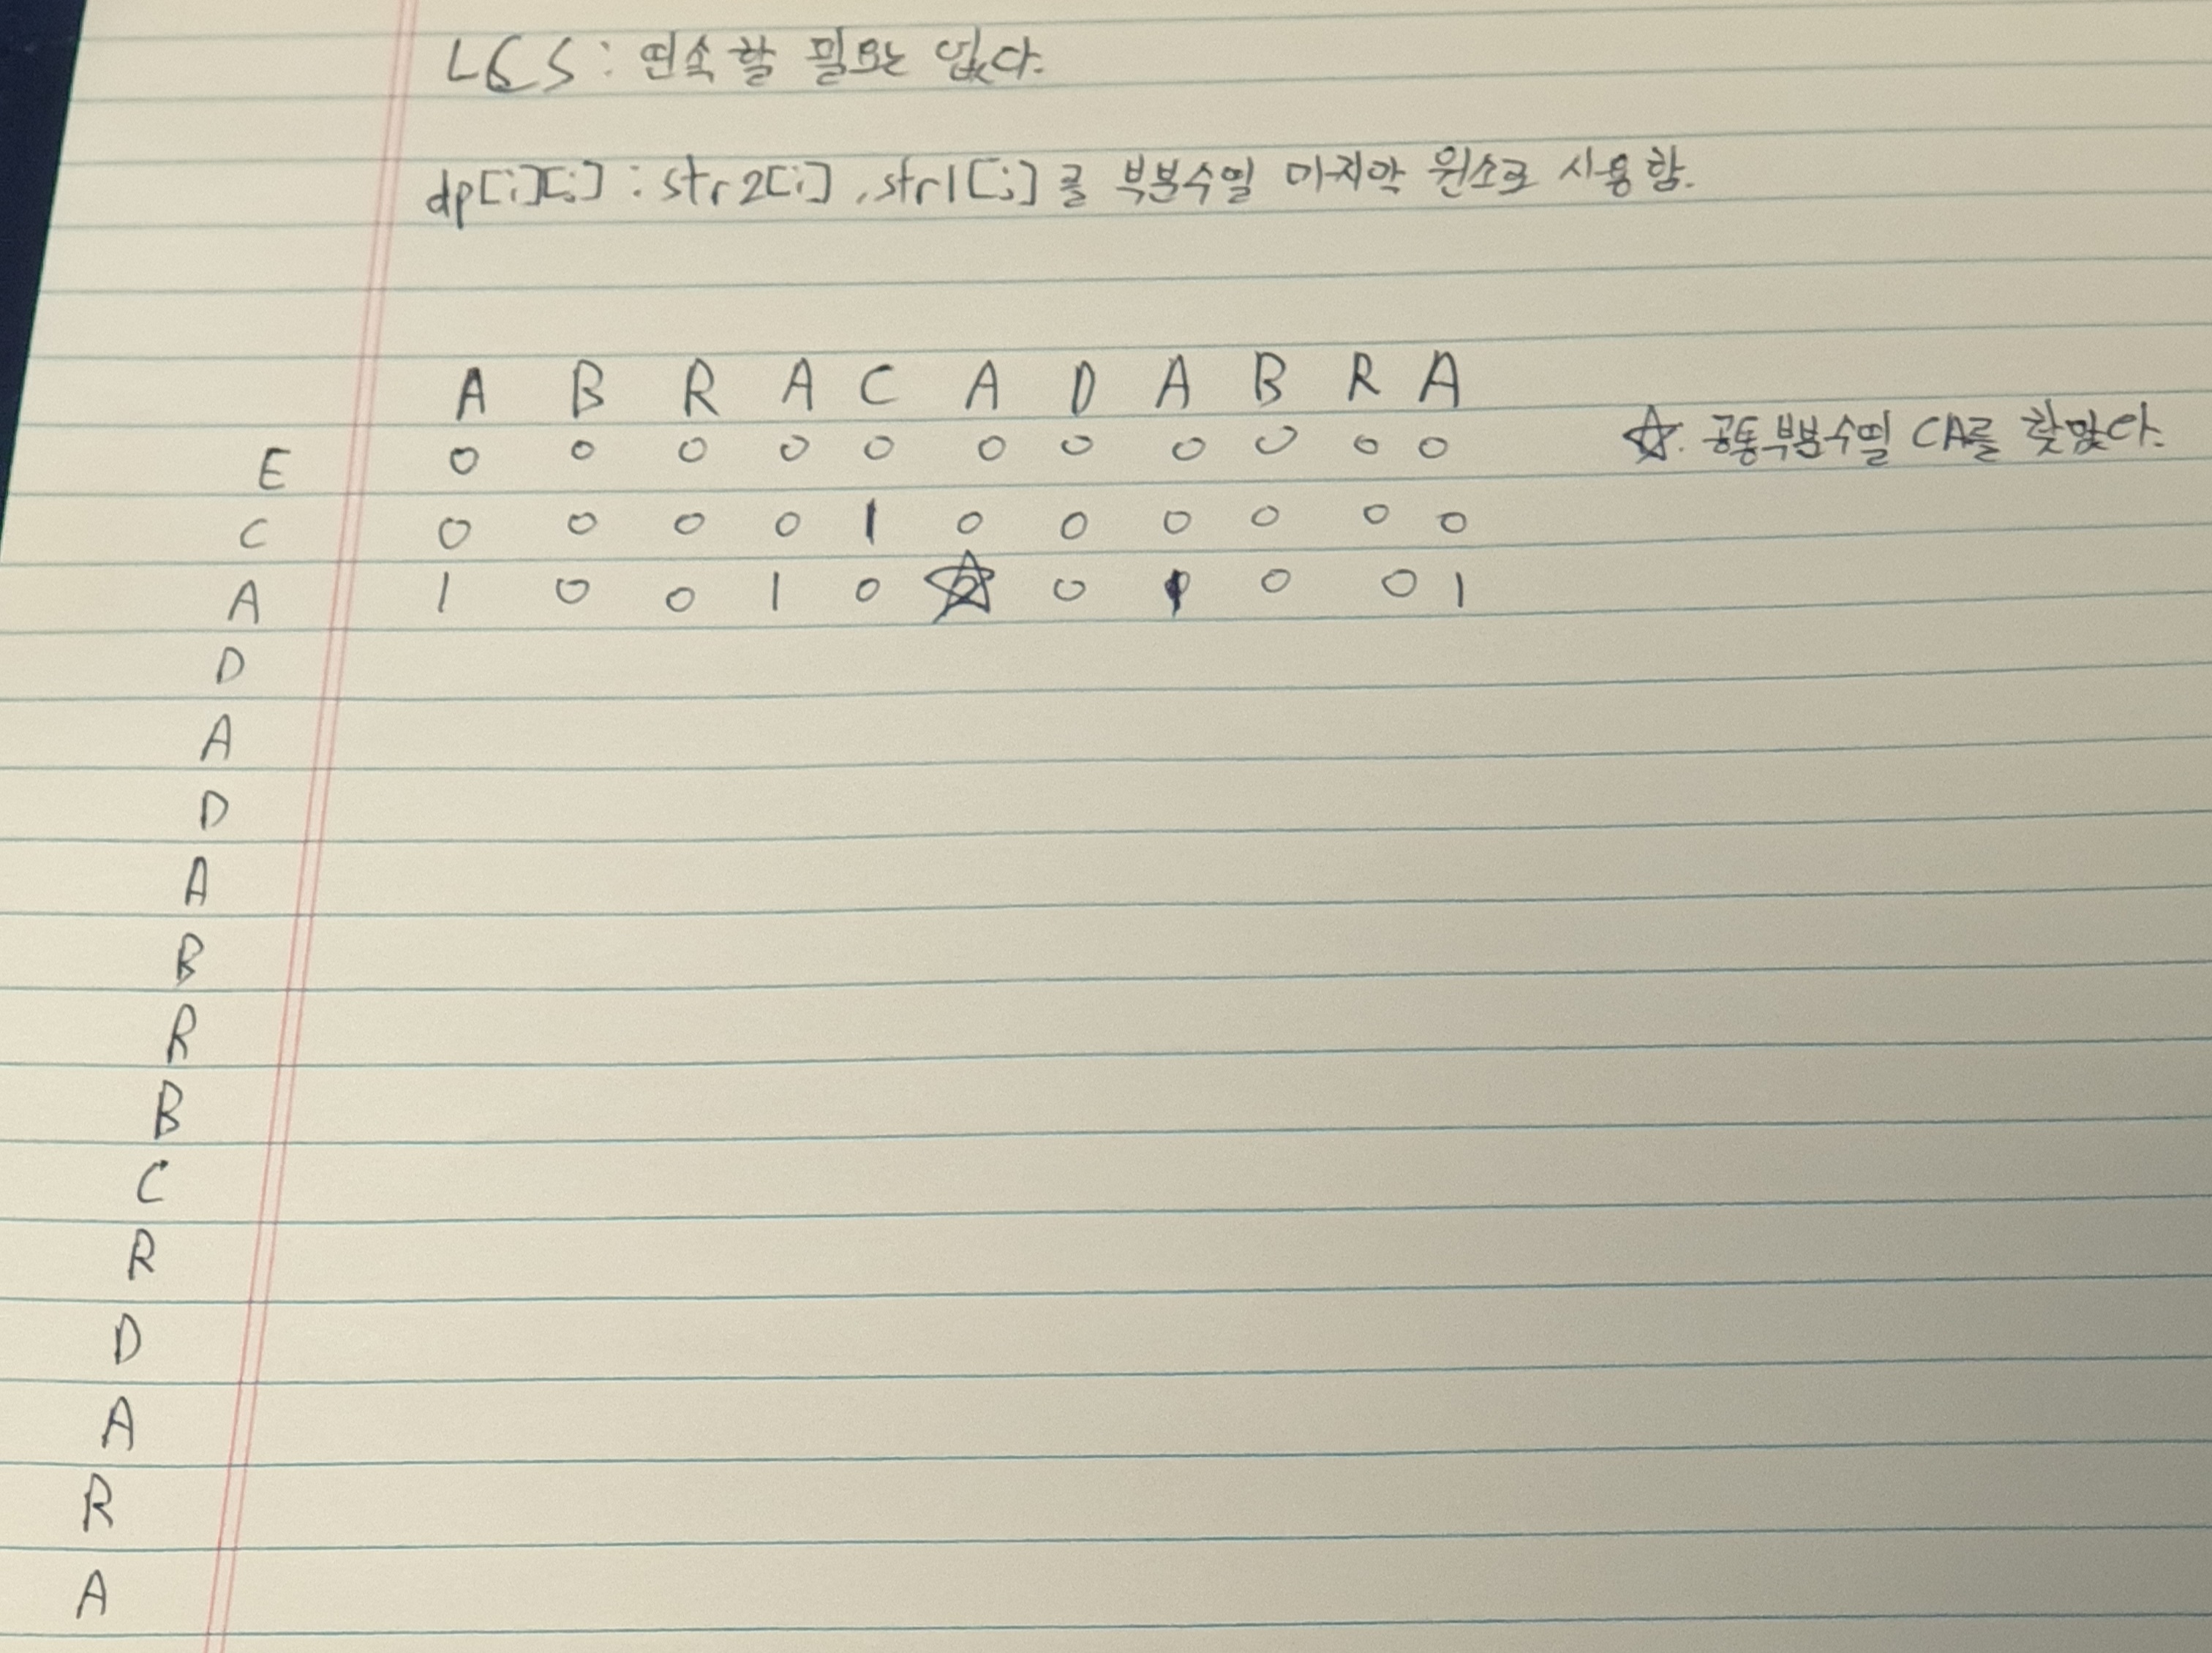 LCS : 연속할 필요는 없다.
dp[i][j] : str2[i], str1[j]를 부분수열 마지막 원소로 사용함.
A B R A C A D A B R A
E 0 0 0 0 0 0 0 0 0 0 0
☆. 공통부분수열 CA를 찾았다.
C 0 0 0 0 1 0 0 0 0 0 0
A 1 0 0 1 0 2 0 1 0 0 1
D
A
D
A
B
R
B
C
R
D
A
R
A